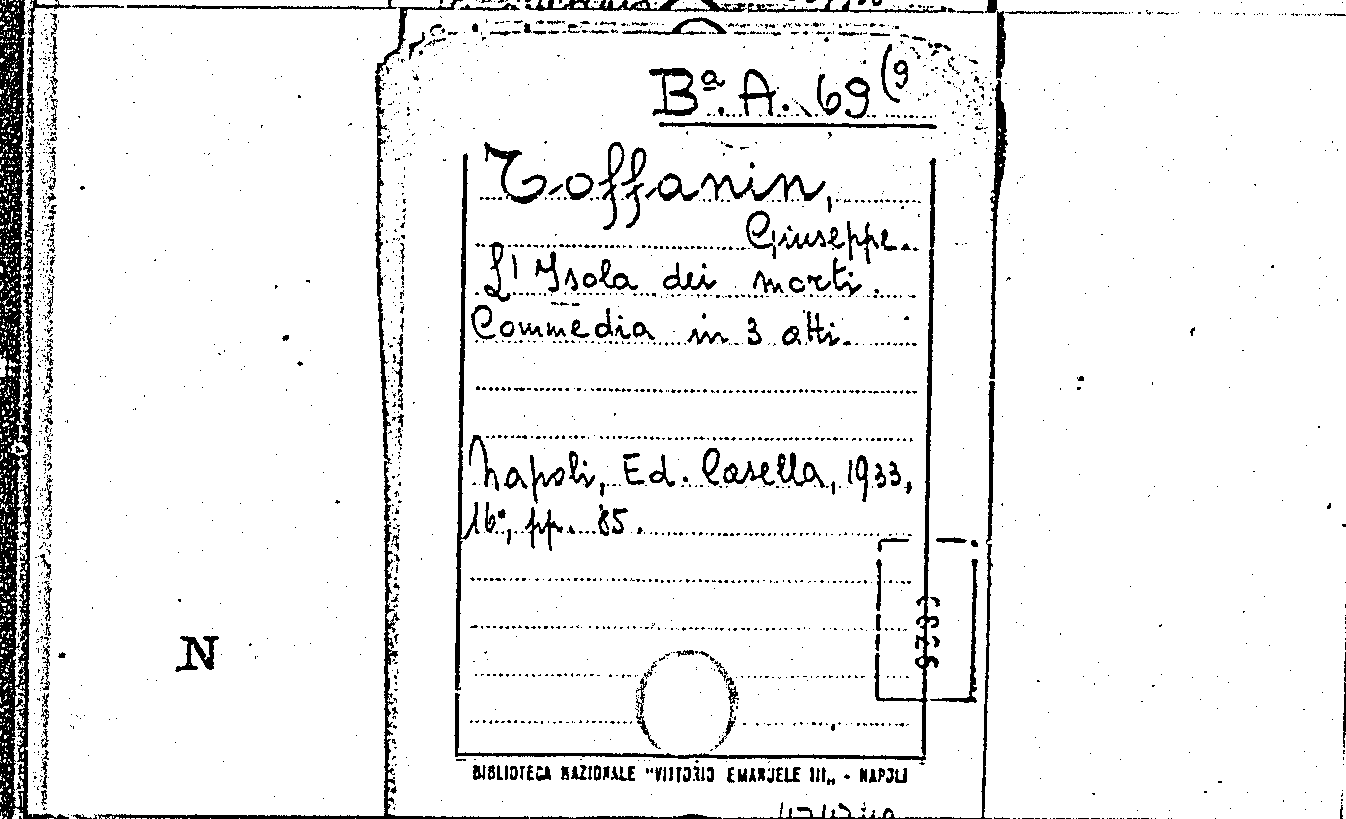 Bª. A. 69 (9
Toffanin,
Giuseppe.
L' Isola dei morti.
Commedia in 3 atti.
Napoli, Ed. Casella, 1933,
16°, pp. 85.
N
BIBLIOTECA NAZIONALE "VITTORIO EMANUELE III„ - NAPOLI